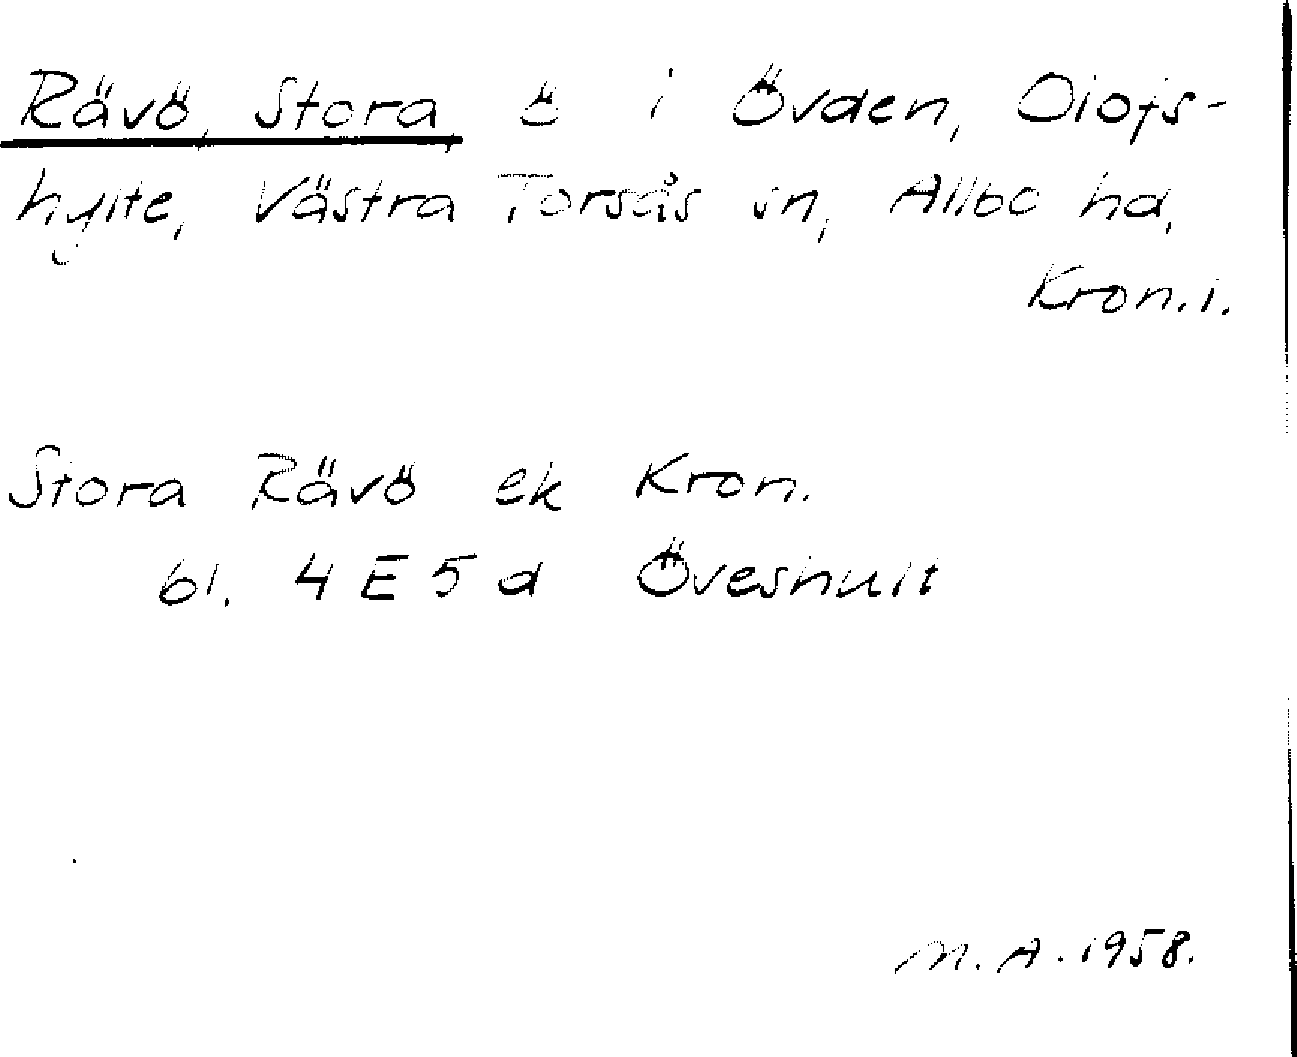 Rävö, Stora, ö i Övden, Olofs-
hylte, Västra Torsås sn, Allbo hd,
Kron.l.
Stora Rävö ek Kron.
bl. 4 E 5 d Öveshult
M.A. 1958.